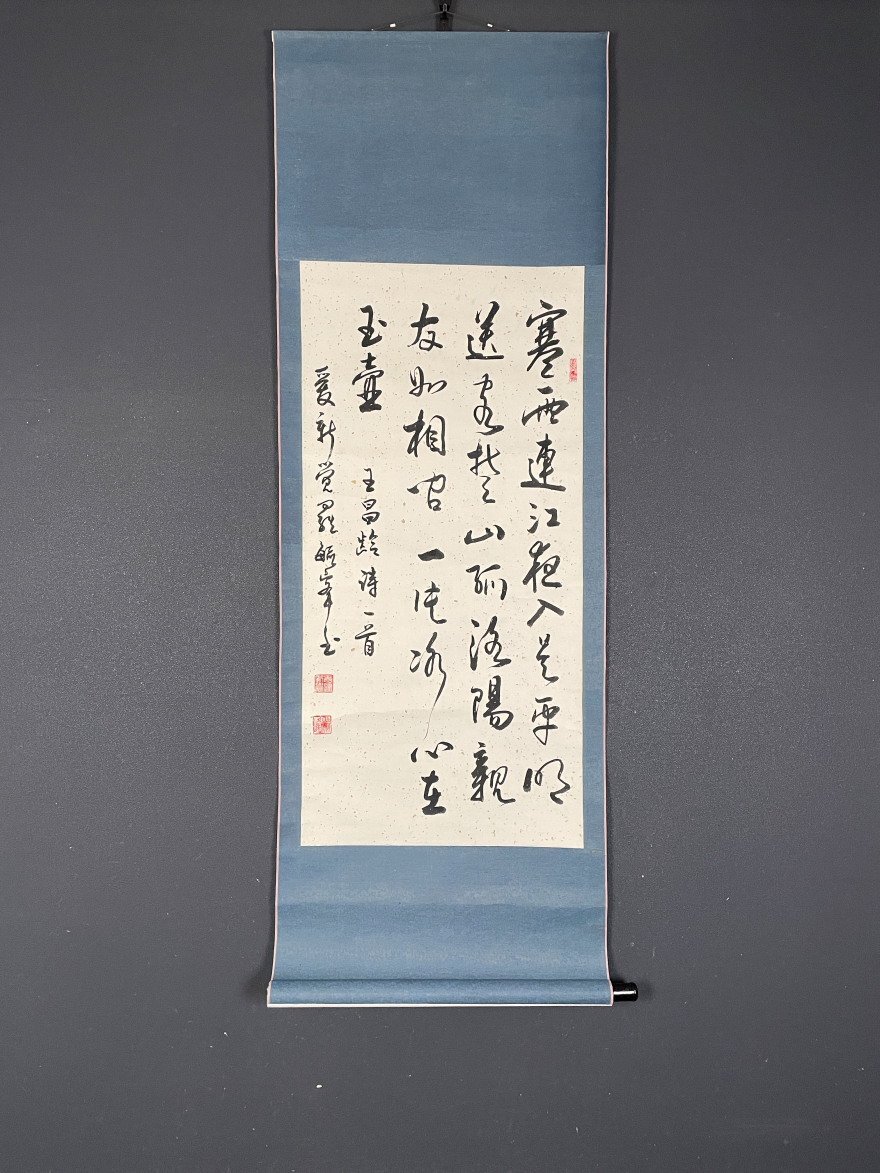 寒雨連江夜入吴平明
送客楚山孤洛陽親
友如相问一片冰心在
玉壺
王昌齡詩一首
爱新覚羅毓峯书